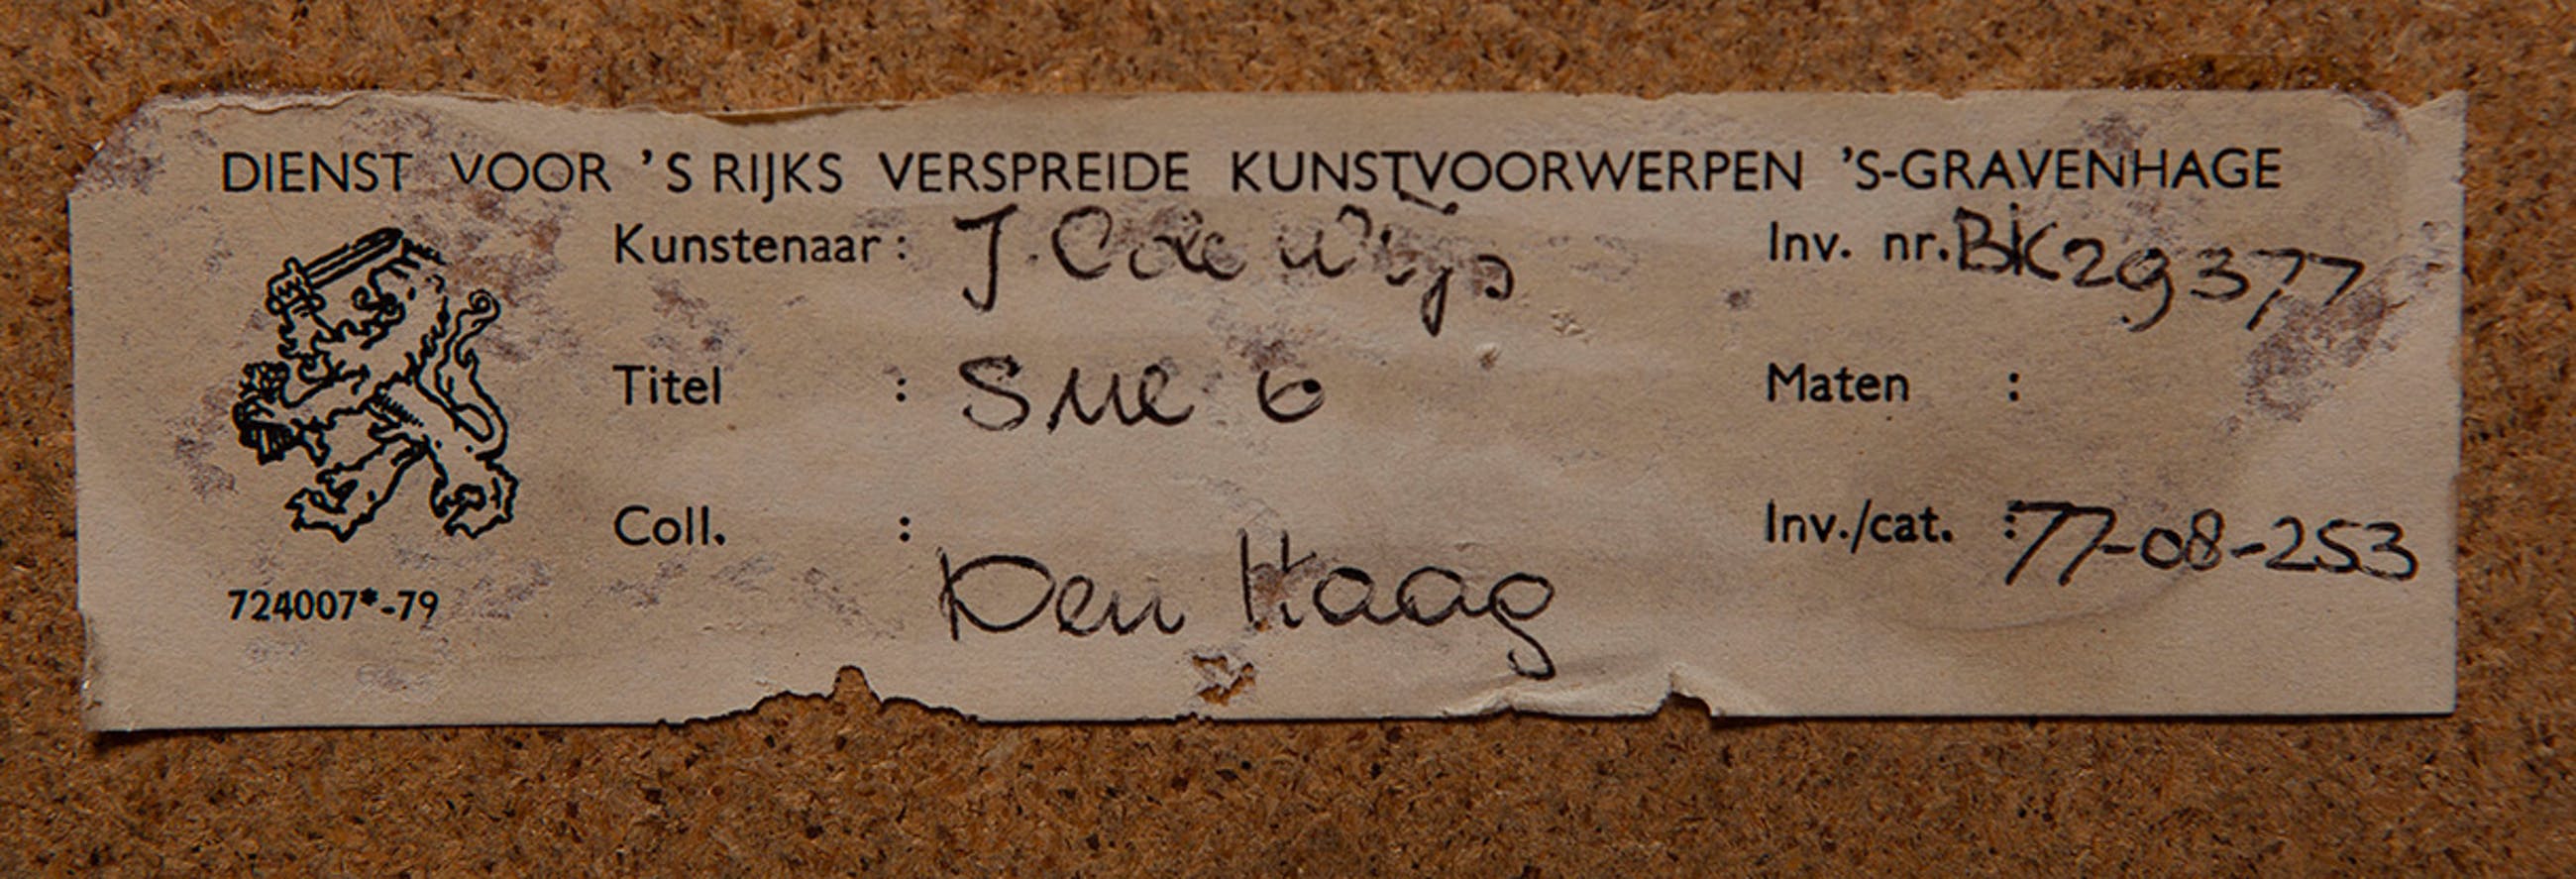 DIENST VOOR 'S RIJKS VERSPREIDE KUNSTVOORWERPEN 'S-GRAVENHAGE
Kunstenaar: J. C de Wijs Inv. nr. BK29377
Titel : SME 6 Maten :
Coll. : Den Haag Inv./cat. : 77-08-253
724007*-79